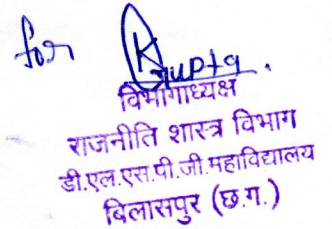 for Gupta.
विभागाध्यक्ष
राजनीति शास्त्र विभाग
डी.एल.एस.पी.जी.महाविद्यालय
बिलासपुर (छ.ग.)